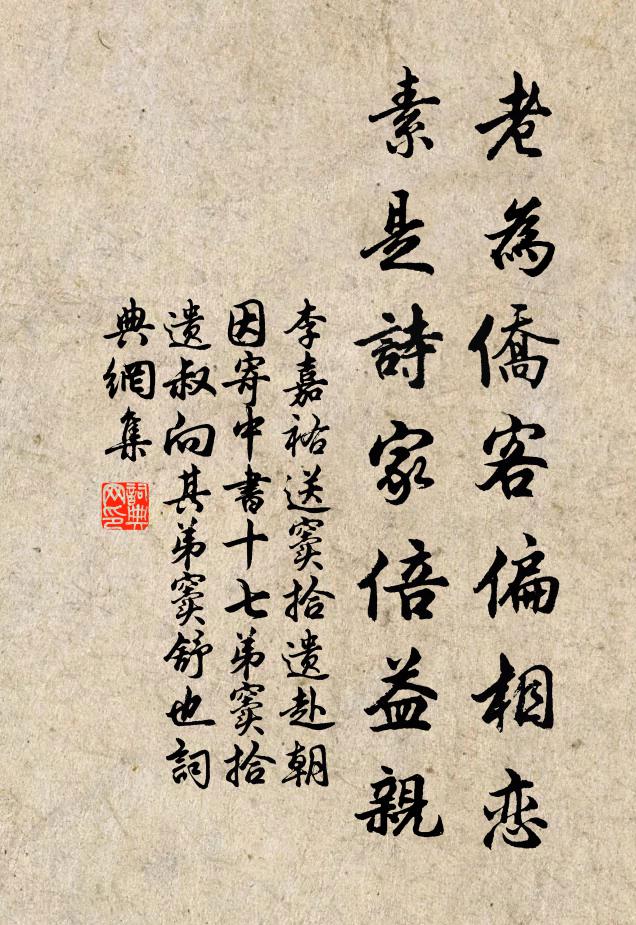 老為僑客偏相恋
素是詩家倍益親
李嘉祐送竇拾遺赴朝
因寄中書十七弟竇拾
遺叔向其弟竇舒也詞
典網集
詞典
网印